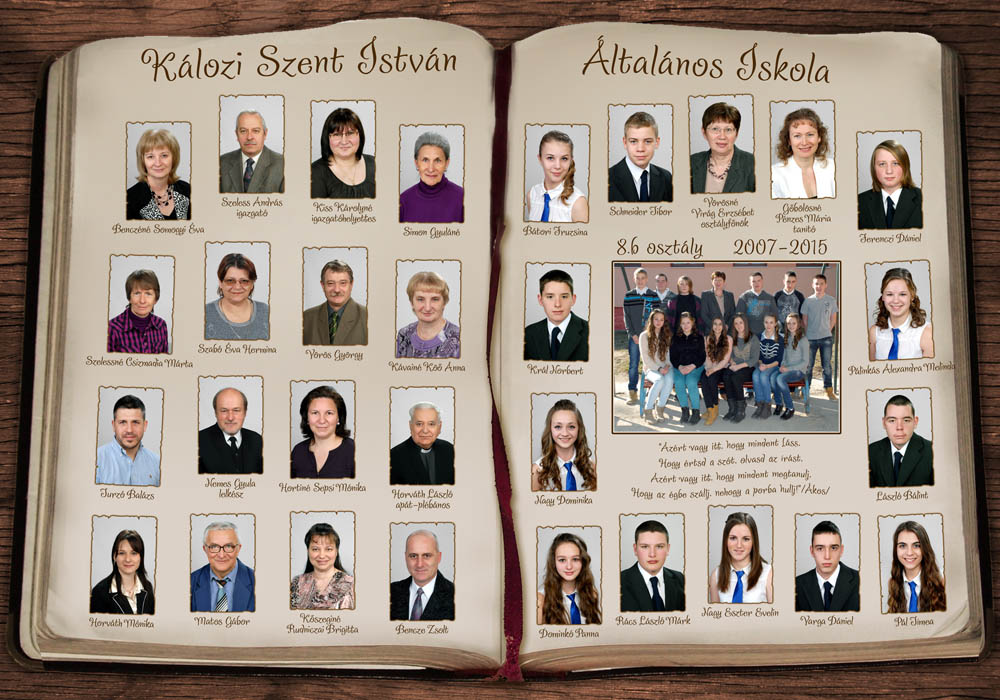 Kálozi Szent István
Általános Iskola
Benczéné Somogyi Éva
Szeless András
igazgató
Kiss Károlyné
igazgatóhelyettes
Simon Gyuláné
Szelessné Csizmadia Márta
Szabó Éva Hermina
Vörös György
Kávainé Köő Anna
Turzó Balázs
Nemes Gyula
lelkész
Hortiné Sepsi Mónika
Horváth László
apát-plébános
Horváth Mónika
Matos Gábor
Kőszeginé
Rudniczai Brigitta
Bencze Zsolt
Bátori Fruzsina
Schneider Tibor
Vörösné
Virág Erzsébet
osztályfőnök
Göbölösné
Pénzes Mária
tanító
Ferenczi Dániel
8.b osztály 2007-2015
Král Norbert
Pálinkás Alexandra Melinda
Nagy Dominika
"Azért vagy itt, hogy mindent láss.
Hogy értsd a szót, olvasd az írást.
Azért vagy itt, hogy mindent megtanulj.
Hogy az égbe szállj, nehogy a porba hullj!"/Ákos/
László Bálint
Dominkó Panna
Rács László Márk
Nagy Eszter Evelin
Varga Dániel
Pál Tímea